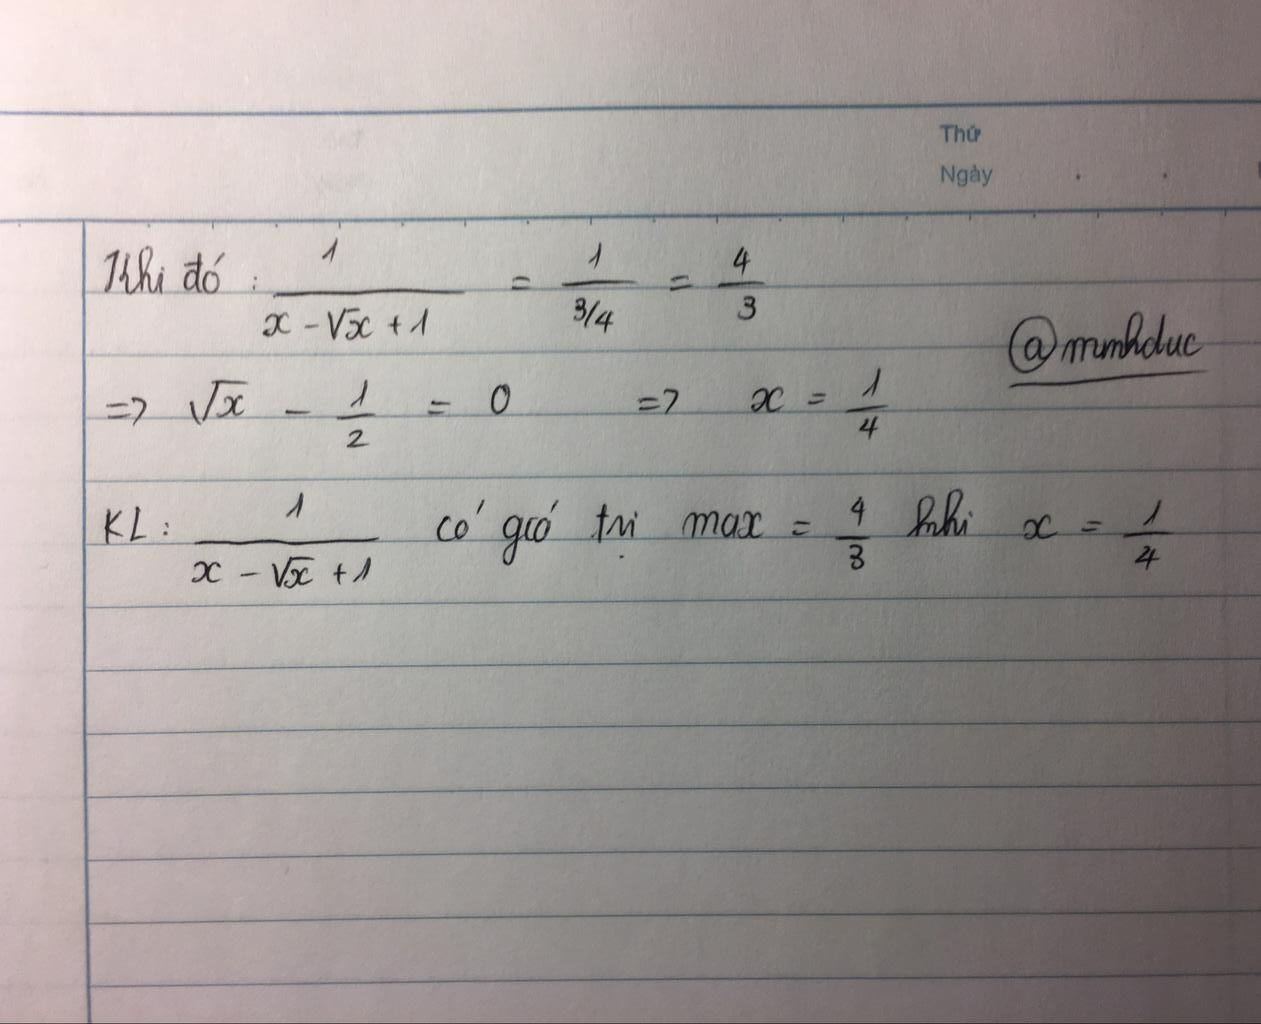 Thứ
Ngày
Khi đó : 1/(x - √x + 1) = 1/(3/4) = 4/3
@mmhduc
=> √x - 1/2 = 0 => x = 1/4
KL : 1/(x - √x + 1) có giá trị max = 4/3 khi x = 1/4